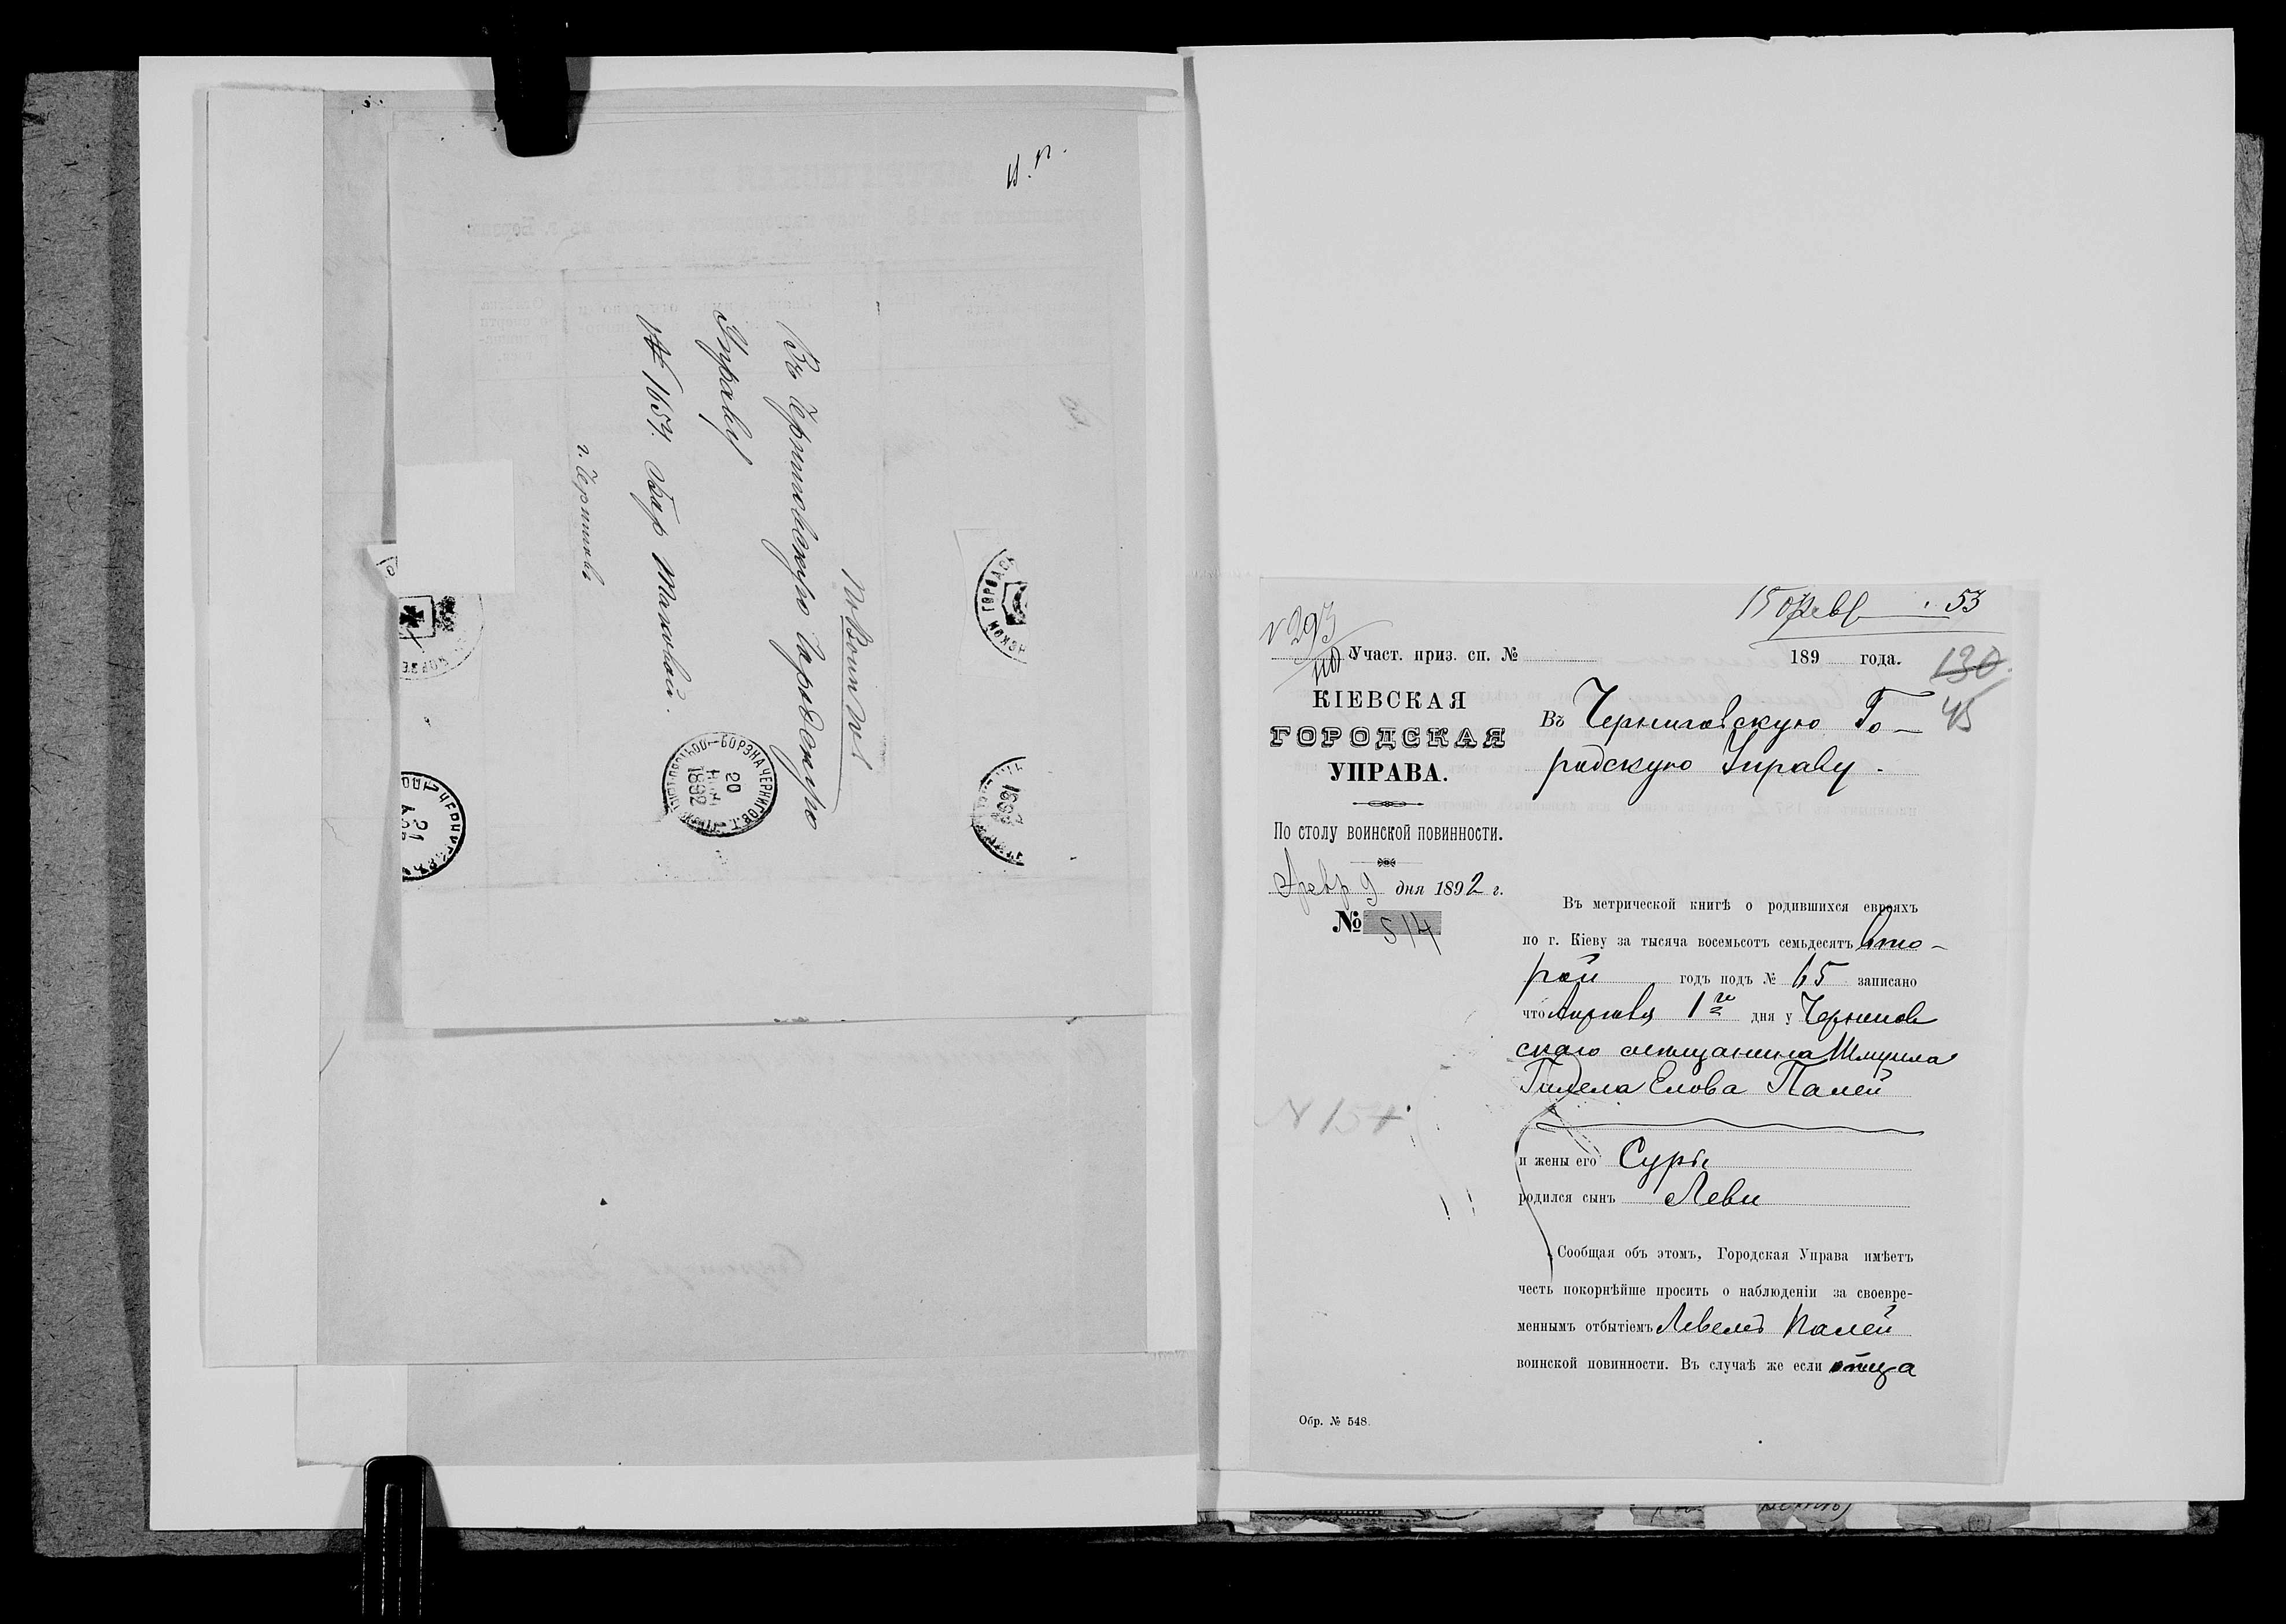 По Воин пов
Въ Черниговскую Городскую
Управу
№ 1654.
г. Черниговъ
БОРЗНА ЧЕРНИГОВ. Г.
20
1892
21
15 Февр 53
№ 293
Участ. приз. сп. № 189 года.
130
45
КІЕВСКАЯ
ГОРОДСКАЯ
УПРАВА.
По столу воинской повинности.
Февр 9 дня 1892 г.
№ 514
Въ Черниговскую Го-
родскую Управу.
Въ метрической книгѣ о родившихся евреяхъ
по г. Кіеву за тысяча восемьсотъ семьдесятъ вто-
рой годъ подъ № 65 записано
что Апрѣля 1го дня у Чернигов
скаго мѣщанина Шмуила
Гилела Елова Палей
и жены его Суры
родился сынъ Леви
Сообщая объ этомъ, Городская Управа имѣетъ
честь покорнѣйше просить о наблюденіи за своевре-
меннымъ отбытіемъ Палей
воинской повинности. Въ случаѣ же если отца
№ 151
Обр. № 548.